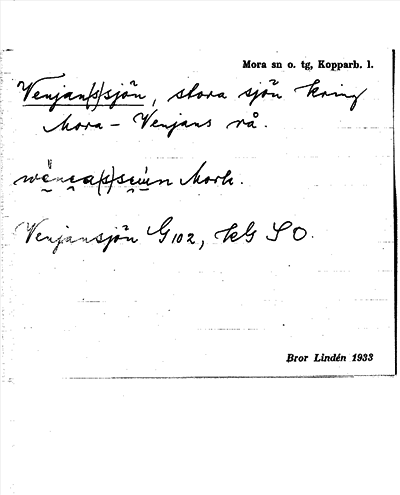 Mora sn o. tg, Kopparb. l.
Venjan(s)sjön, stora sjön kring
Mora - Venjans rå.
Mork.
Venjansjön G102, kG SO.
Bror Lindén 1933